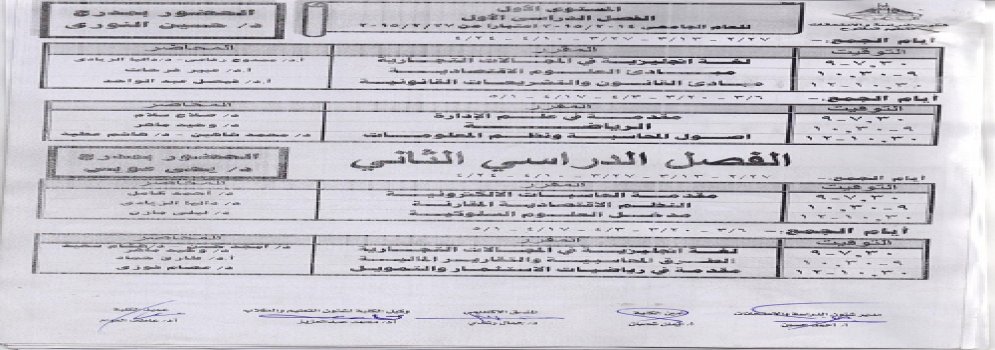 المستوى الأول
الفصل الدراسي الأول
للعام الجامعي ٢٠١٥/٢٠١٤ اعتباراً من ٢٠١٥/٢/٢٧
الحضور بمدرج
د/ حسين النوري
أيام الجمع:- ٢/٢٧ - ٣/١٣ - ٣/٢٧ - ٤/١٠ - ٤/٢٤
التوقيت المقرر المحاضر
٧,٣٠-٩ لغة انجليزية في المجالات التجارية أ.د. ممدوح رفاعي - د. داليا الزيادي
٩-١٠,٣٠ مبادئ العلوم الاقتصادية أ.د. عبير فرحات
١٠,٣٠-١٢ مبادئ القانون والتشريعات القانونية أ.د. فيصل عبد الواحد
أيام الجمع:- ٣/٦ - ٣/٢٠ - ٤/٣ - ٤/١٧ - ٥/١
التوقيت المقرر المحاضر
٧,٣٠-٩ مقدمة في علم الإدارة د. صلاح سلام
٩-١٠,٣٠ الرياضة د. ماهر
١٠,٣٠-١٢ أصول المحاسبة ونظم المعلومات د. محمد شاهين - د. هاشم عطية
الفصل الدراسي الثاني
الحضور بمدرج
د/ يحيى عويس
أيام الجمع:- ٢/٢٧ - ٣/١٣ - ٣/٢٧ - ٤/١٠ - ٤/٢٤
التوقيت المقرر المحاضر
٧,٣٠-٩ مقدمة الحاسبات الالكترونية د. أحمد كامل
٩-١٠,٣٠ النظم الاقتصادية المقارنة د. داليا الزيادي
١٠,٣٠-١٢ مدخل العلوم السلوكية د. ليلى
أيام الجمع:- ٣/٦ - ٣/٢٠ - ٤/٣ - ٤/١٧ - ٥/١
التوقيت المقرر المحاضر
٧,٣٠-٩ لغة انجليزية في المجالات التجارية
٩-١٠,٣٠ الطرق المحاسبية والتقارير المالية د. طارق حماد
١٠,٣٠-١٢ مقدمة في رياضيات الاستثمار والتمويل د. عصام فوزي
مدير شئون الدراسة والامتحانات أمين الكلية المنسق الأكاديمي وكيل الكلية لشئون التعليم والطلاب عميد الكلية
أ. أحمد حسين أ.د. محمد عبد العزيز